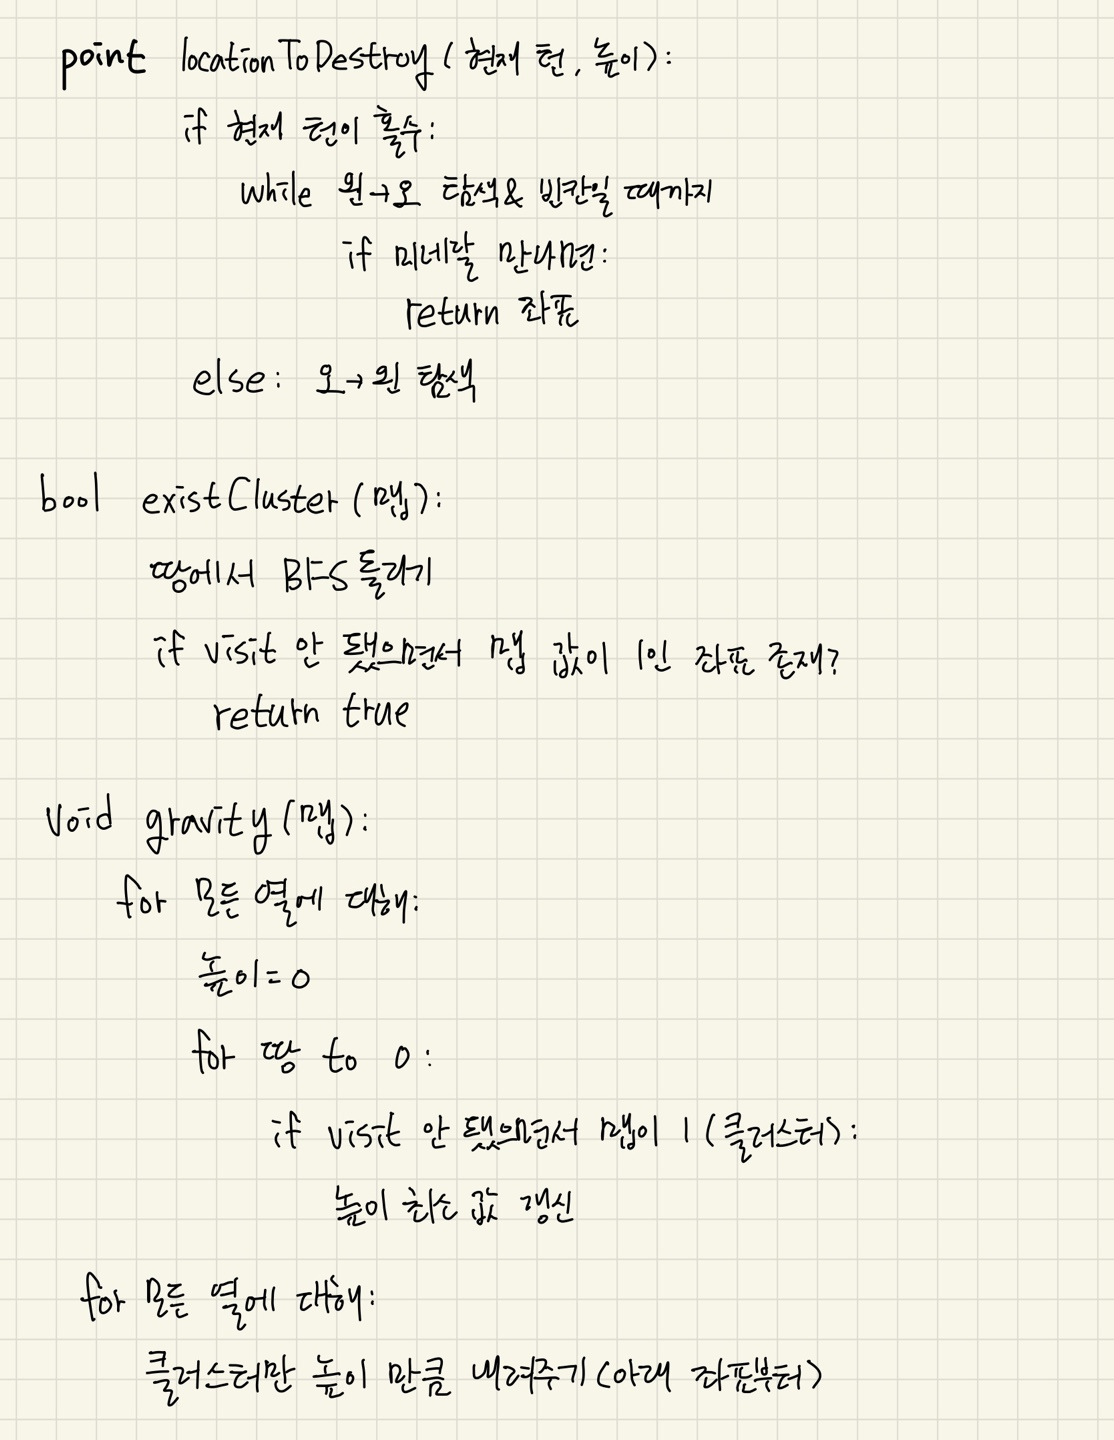 point locationToDestroy (현재 턴, 높이):
if 현재 턴이 홀수:
while 왼→오 탐색 & 빈칸일 때까지
if 미네랄 만나면:
return 좌표
else: 오→왼 탐색
bool existCluster (맵):
땅에서 BFS 돌리기
if visit 안 됐으면서 맵 값이 1인 좌표 존재?
return true
void gravity (맵):
for 모든 열에 대해:
높이=0
for 땅 to 0:
if visit 안 됐으면서 맵이 1 (클러스터):
높이 최소 값 갱신
for 모든 열에 대해:
클러스터만 높이 만큼 내려주기 (아래 좌표부터)